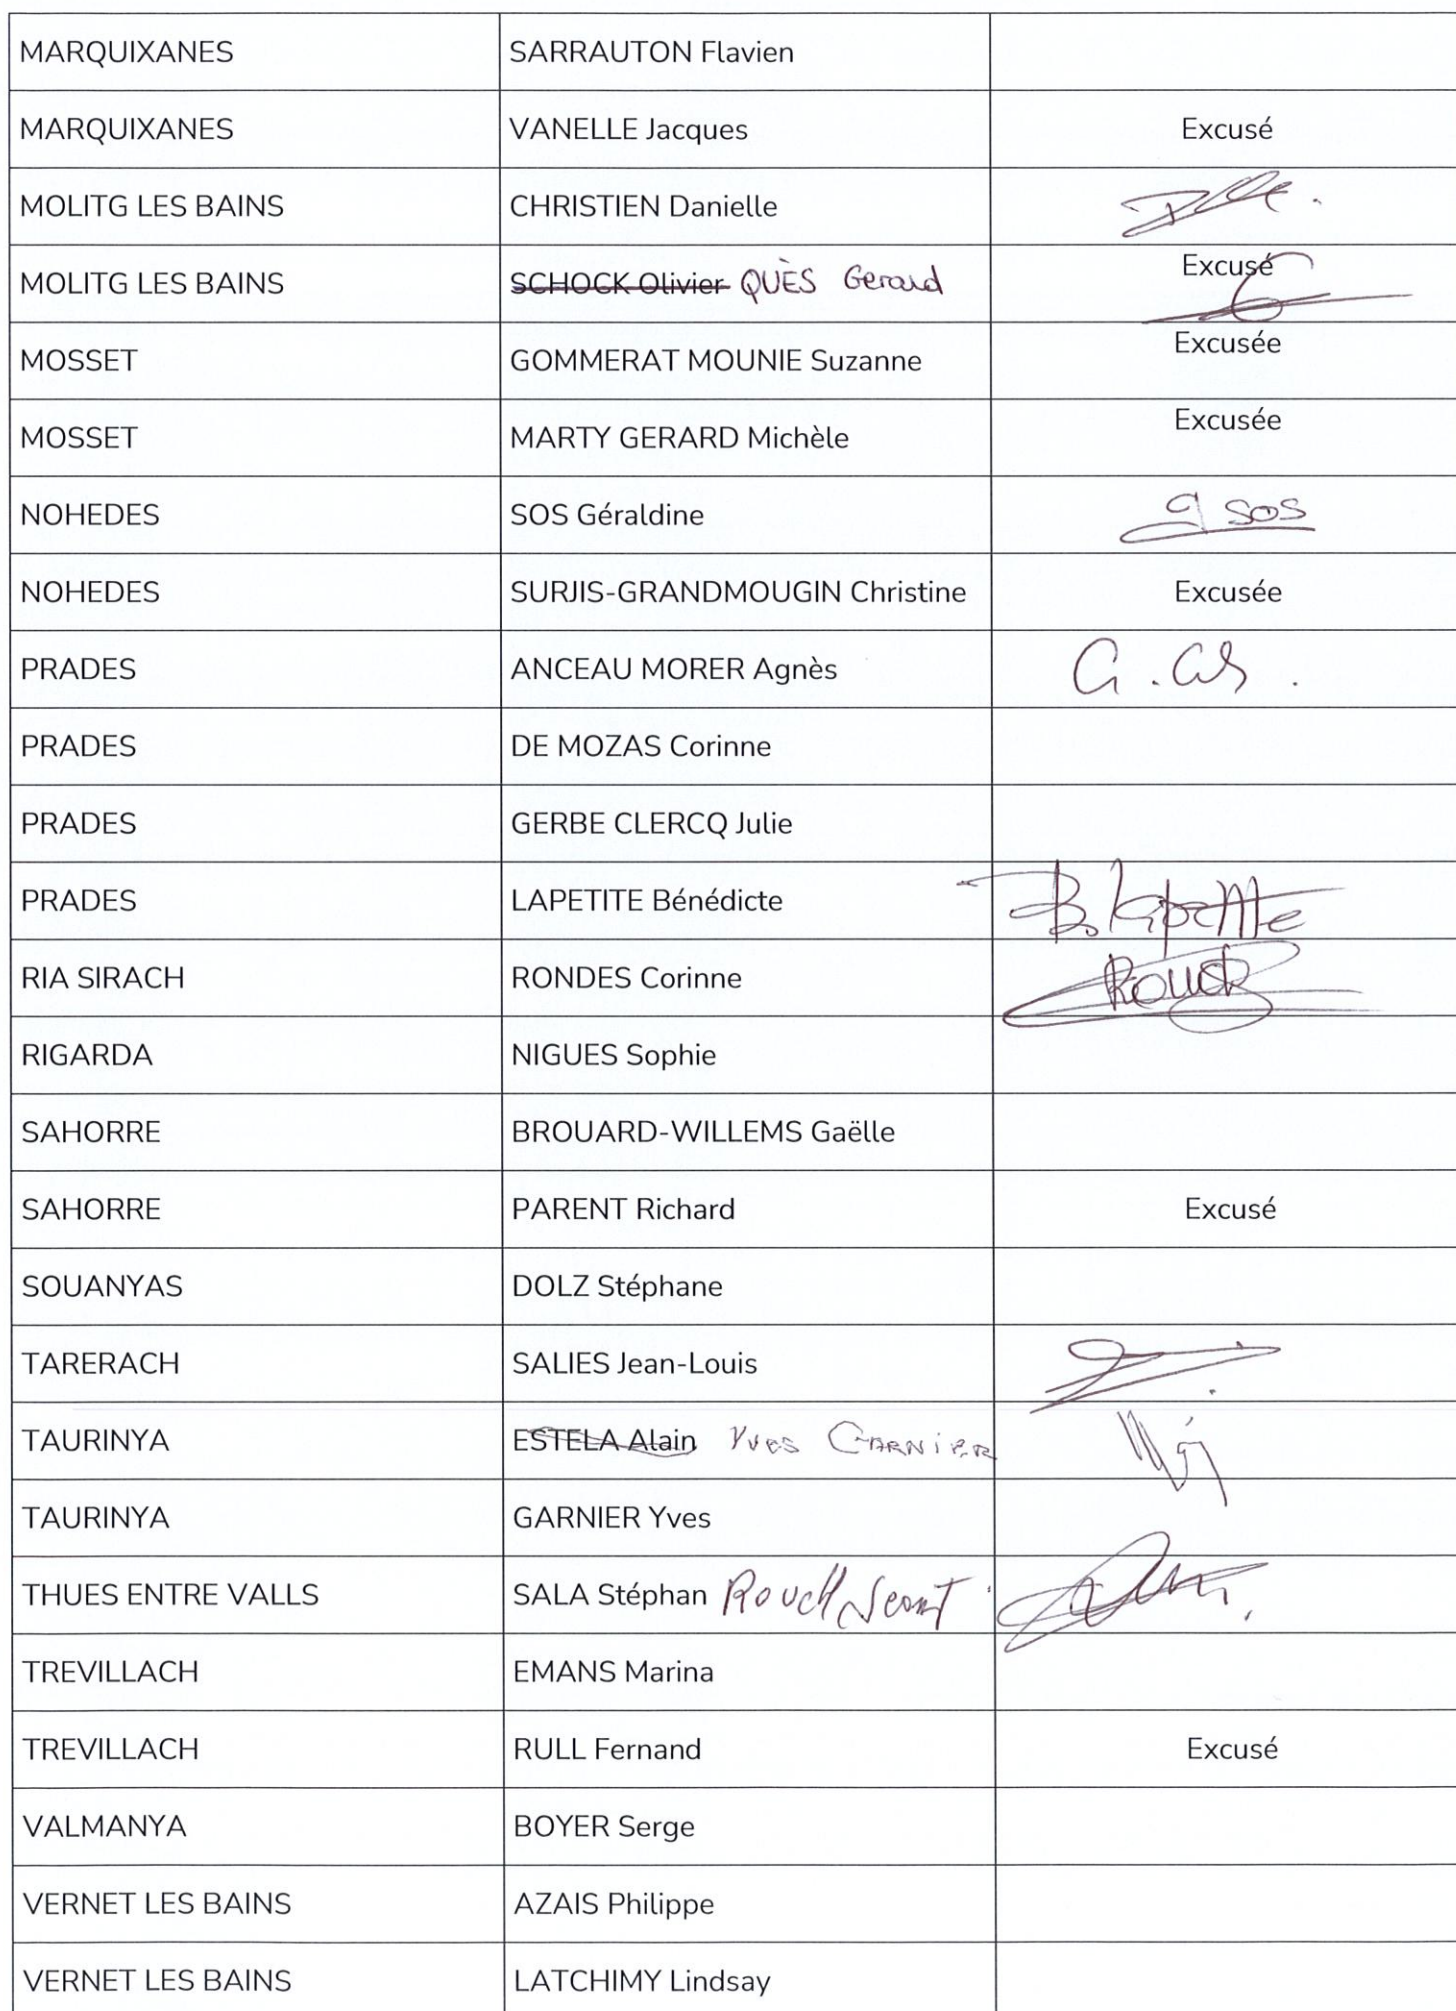 MARQUIXANES SARRAUTON Flavien
MARQUIXANES VANELLE Jacques Excusé
MOLITG LES BAINS CHRISTIEN Danielle
MOLITG LES BAINS SCHOCK Olivier QUÈS Gerard Excusé
MOSSET GOMMERAT MOUNIE Suzanne Excusée
MOSSET MARTY GERARD Michèle Excusée
NOHEDES SOS Géraldine g sos
NOHEDES SURJIS-GRANDMOUGIN Christine Excusée
PRADES ANCEAU MORER Agnès
PRADES DE MOZAS Corinne
PRADES GERBE CLERCQ Julie
PRADES LAPETITE Bénédicte B. Lapetite
RIA SIRACH RONDES Corinne
RIGARDA NIGUES Sophie
SAHORRE BROUARD-WILLEMS Gaëlle
SAHORRE PARENT Richard Excusé
SOUANYAS DOLZ Stéphane
TARERACH SALIES Jean-Louis
TAURINYA ESTELA Alain Yves GARNIER
TAURINYA GARNIER Yves
THUES ENTRE VALLS SALA Stéphan
TREVILLACH EMANS Marina
TREVILLACH RULL Fernand Excusé
VALMANYA BOYER Serge
VERNET LES BAINS AZAIS Philippe
VERNET LES BAINS LATCHIMY Lindsay